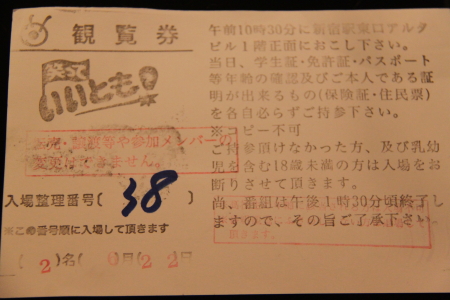 観覧券
笑って
いいとも!
変更はできません。
入場整理番号〔 38 〕
※この番号順に入場して頂きます
( 2 )名( 月 2 2 日
午前10時30分に新宿駅東口アルタ
ビル1階正面におこし下さい。
当日、学生証・免許証・パスポート
等年齢の確認及びご本人である証
明が出来るもの(保険証・住民票)
を各自必らずご持参下さい。
※コピー不可
ご持参頂けなかった方、及び乳幼
児を含む18歳未満の方は入場をお
断りさせて頂きます。
尚、番組は午後1時30分頃終了し
ますので、その旨ご了承下さい